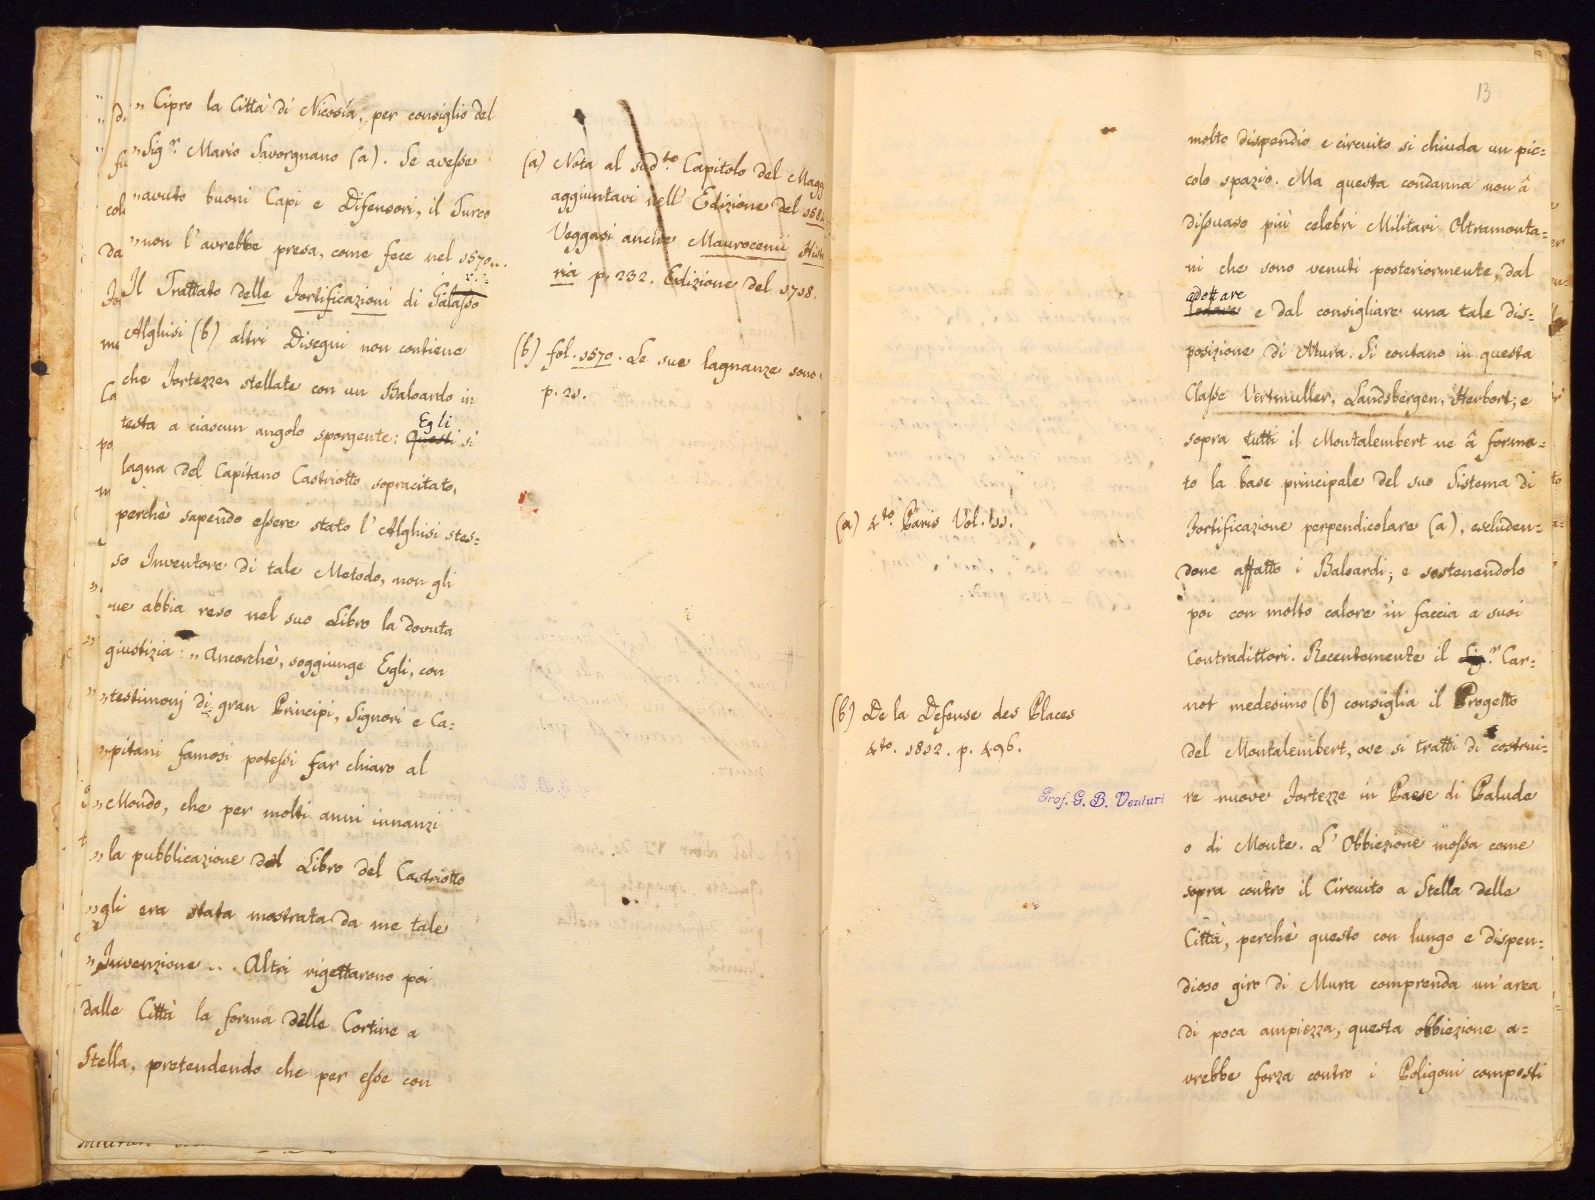 „ Cipro la Città di Nicosia, per consiglio del
„ Sig.r Mario Savorgnano (a). Se avesse
„ avuto buoni Capi e Difensori, il Turco
„ non l'avrebbe presa, come fece nel 1570...
Il Trattato delle Fortificazioni di Galasso
Alghisi (b) altri Disegni non contiene
che Fortezze stellate con un Baloardo in
testa a ciascun angolo sporgente: Questi Egli si
lagna del Capitano Castriotto sopracitato,
perchè sapendo essere stato l'Alghisi stes=
so Inventore di tale Metodo, non gli
ne abbia reso nel suo Libro la dovuta
giustizia: „ Ancorchè, soggiunge Egli, con
„ testimonj di gran Principi, Signori e Ca=
„ pitani famosi potessi far chiaro al
„ Mondo, che per molti anni innanzi
„ la pubblicazione del Libro del Castriotto
„ gli era stata mostrata da me tale
„ Invenzione ... Altri rigettarono poi
dalle Città la forma delle Cortine a
Stella, pretendendo che per esse con
(a) Nota al sud.to Capitolo del Magg
aggiuntavi nell'Edizione del 158
Veggasi anche Maurocenii Histo
ria p. 232. Edizione del 1718.
(b) fol. 1570. Le sue lagnanze sono
p. 21.
13
molto dispendio e circuito si chiuda un pic=
colo spazio. Ma questa condanna non â
dissuaso più celebri Militari Oltramonta=
ni che sono venuti posteriormente, dal
adottare
lodare e dal consigliare una tale dis=
posizione di Mura. Si contano in questa
Classe Vertmuller, Landsbergen, Herbort; e
sopra tutti il Montalembert ne â forma=
to la base principale del suo Sistema di
Fortificazione perpendicolare (a), escluden=
done affatto i Baloardi; e sostenendolo
poi con molto calore in faccia a suoi
Contradittori. Recentemente il Sig.r Car=
not medesimo (b) consiglia il Progetto
del Montalembert, ove si tratti di costrui=
re nuove Fortezze in Paese di Palude
o di Monte. L'Obbiezione mossa come
sopra contro il Circuito a Stella delle
Città, perchè questo con lungo e dispen=
dioso giro di Mura comprenda un'area
di poca ampiezza, questa obbiezione a=
vrebbe forza contro i Poligoni composti
(a) 4.to Paris Vol. 11.
(b) De la Defense des Places
4.to. 1812. p. 496.
Prof. G. B. Venturi